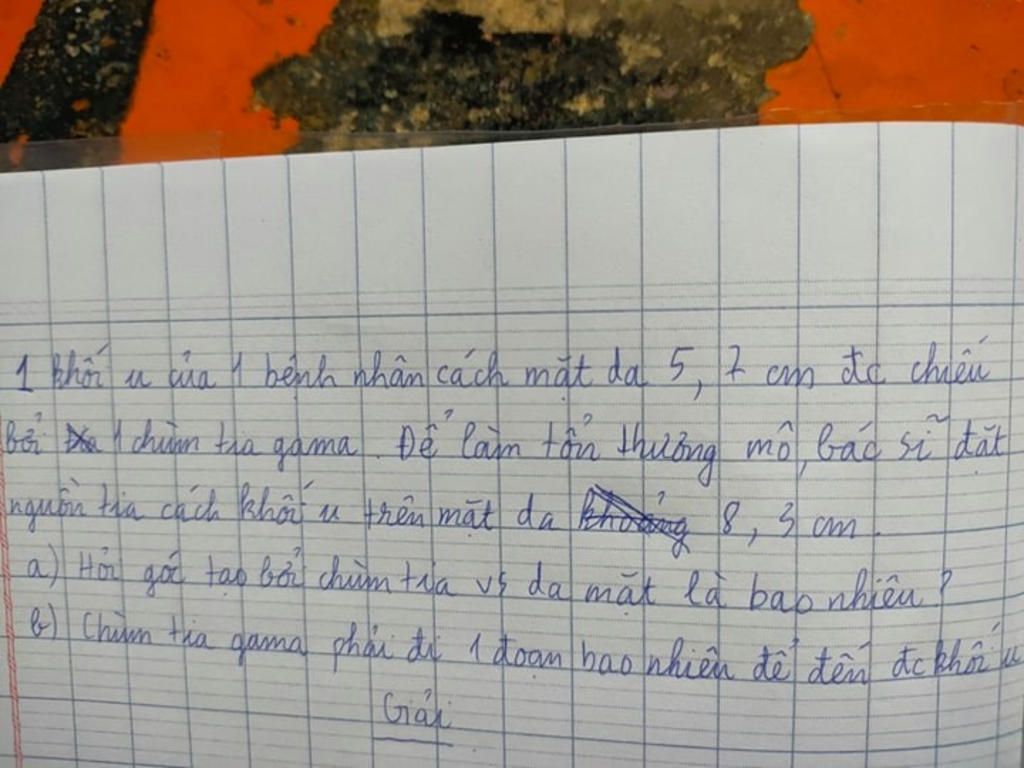 1 khối u của 1 bệnh nhân cách mặt da 5,7 cm đc chiếu
bởi 1 chùm tia gama. Để làm tổn thương mô, bác sĩ đặt
nguồn tia cách khối u trên mặt da 8,3 cm.
a) Hỏi góc tạo bởi chùm tia vs da mặt là bao nhiêu?
b) Chùm tia gama phải đi 1 đoạn bao nhiên để đến đc khối u
Giải